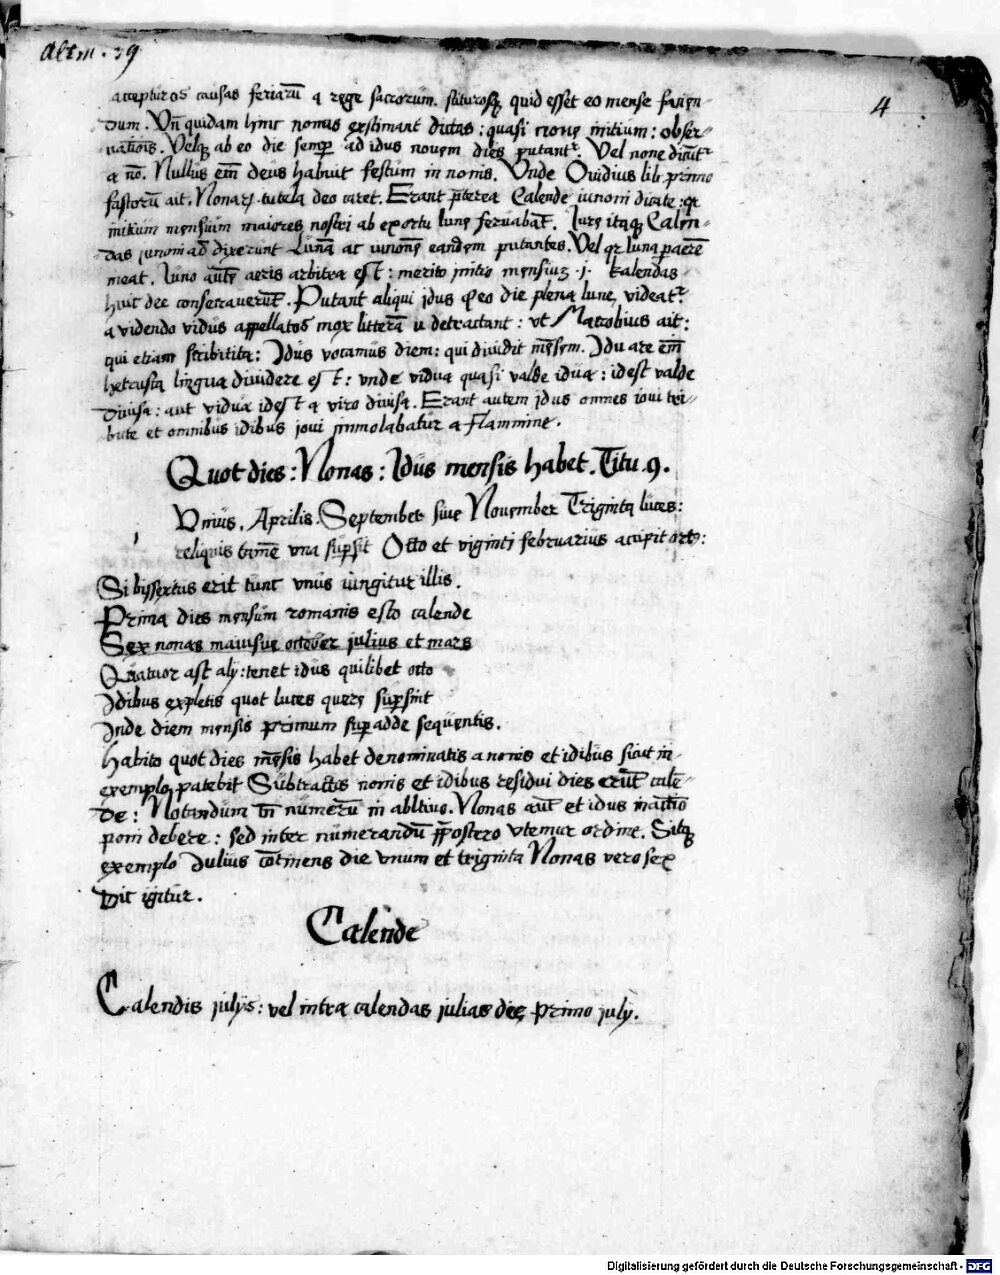 Altm. 39
4
accepturos causas feriarū a rege sacrorum. sciturosqȝ quid esset eo mense facien-
dum. Vn̄ quidam hinc nonas existimant dictas: quasi noue initium: obser-
uatiōis. Velqȝ ab eo die semp̄ ad idus nouem dies putantr. Vel none dicūtr
a nō. Nullus em̄ deus habuit festum in nonis. Vnde Ouidius lib. primo
fastorū ait. Nonarȝ tutela deo caret. Erant p̄terea Calende iunoni dicate: qr
initium mensium maiores nostri ab exortu lune seruabāt. Iure itaqȝ Calen-
das iunoni ad dixerunt Lunā ac iunonē eandem putantes. Vel qr luna p aerē
meat. Iuno autē aeris arbitra est: merito initio mensiuȝ .i. kalendas
huic dee consecrauerūt. Putant aliqui idus qd eo die plena lune videatr.
a videndo vidus appellatos mox litterā u detractant: vt Macrobius ait:
qui etiam scribit ita: Idus vocamus diem: qui diuidit mēsem. Iduare em̄
hetrusca lingua diuidere est: vnde vidua quasi valde idua: idest valde
diuisa: aut vidua idest a viro diuisa. Erant autem idus omnes ioui tri-
bute et omnibus idibus ioui immolabatur a Flammine.
Quot dies: Nonas: Idus mensis habet. Titu. 9.
Vnius, Aprilis. September siue Nouember Triginta luces:
reliquis tamē vna sup̄sit Octo et viginti februarius accipit octo:
Si bissextus erit tunc vnus iungitur illis.
Prima dies mensum romanis esto calende
Sex nonas maiusue october iulius et mars
Quatuor ast alij: tenet idus quilibet octo
Idibus expletis quot luces quere sup̄sint
Inde diem mensis primum sup̄adde sequentis.
Habito quot dies mēsis habet denominatis a nonis et idibus sicut in
exemplo patebit Subtractis nonis et idibus residui dies erūt calē-
de: Notandum tn̄ numerū in abltiuo. Nonas aūt et idus in actiō
poni debere: sed inter numerandū p̄postero vtemur ordine. Sitqȝ
exemplo Iulius cōtinens die vnum et triginta Nonas vero sex
Dic igitur.
Calende
Calendis iulijs: vel intra calendas iulias die primo iulij.
Digitalisierung gefördert durch die Deutsche Forschungsgemeinschaft - DFG